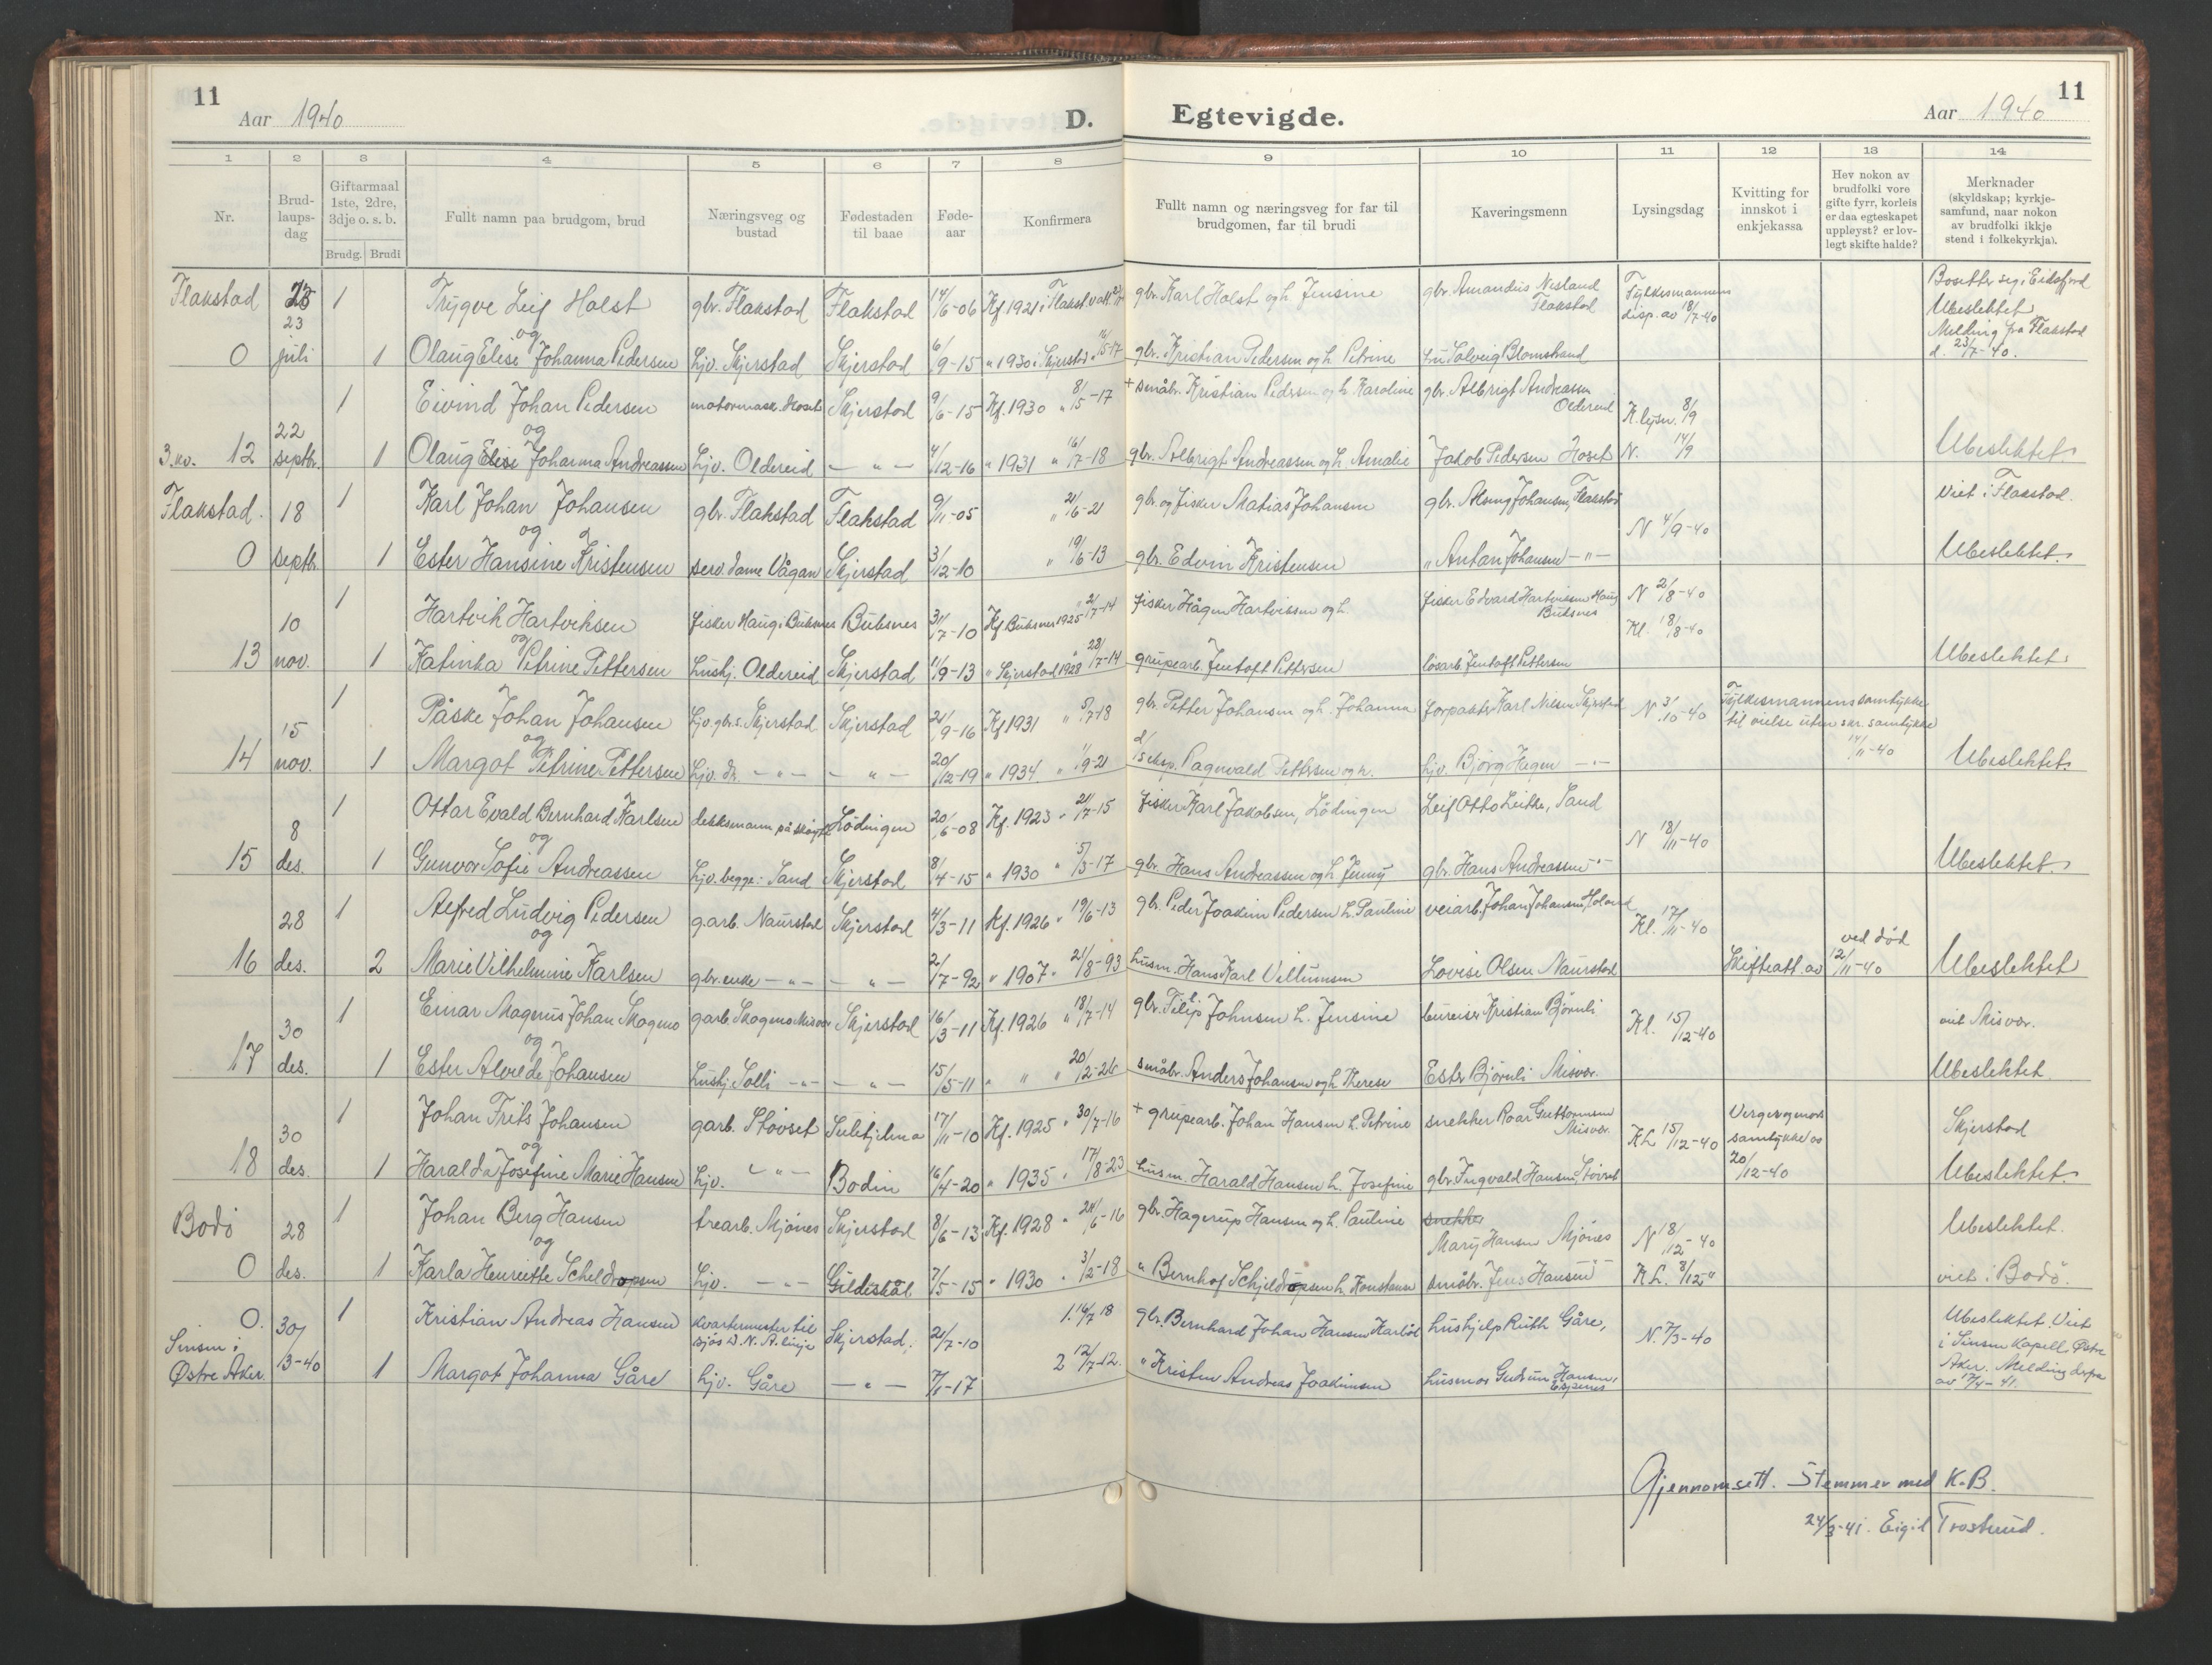 11
Aar 1940
D.
Egtevigde.
Aar 1940
11
1 2 3 4 5 6 7 8 9 10 11 12 13 14
Nr.
Brud-
laups-
dag
Giftarmaal
1ste, 2dre,
3dje o. s. b.
Brudg. Brudi
Fullt namn paa brudgom, brud
Næringsveg og
bustad
Fødestaden
til baae
Føde-
aar
Konfirmera
Fullt namn og næringsveg for far til
brudgomen, far til brudi
Kaveringsmenn
Lysingsdag
Kvitting for
innskot i
enkjekassa
Hev nokon av
brudfolki vore
gifte fyrr, korleis
er daa egteskapet
uppløyst? er lov-
legt skifte halde?
Merknader
(skyldskap; kyrkje-
samfund, naar nokon
av brudfolki ikkje
stend i folkekyrkja).
Flakstad 23 1 Trygve Leif Holst gbr. Flakstad Flakstad 14/6-06 Kf 1921 i Flakst. gbr. Karl Holst og h. Jensine gbr. Amandus Nesland Flakstad Fylkesmannens disp. av 18/7-40 Bosetter seg i Eidsfjord
Ubeslektet
Melding fra Flakstad
d. 23/7-40.
og
0 23 juli 1 Olaug Elise Johanna Pedersen hjv. Skjerstad Skjerstad 6/9-15 " 1930 i Skjerstad gbr. Kristian Pedersen og h. Petrine fru Solveig Blomstrand
1 Eivind Johan Pedersen motormask. Hoset Skjerstad 9/6-15 Kf. 1930 " 8/5-17 + småbr. Kristian Pedersen og h. Karoline gbr. Albrigt Andreassen Oldereid K. lysn. 8/9
og
3. kv. 12 22 septbr. 1 Olaug Elise Johanna Andreassen hjv. Oldereid - " - 4/12-16 " 1931 " 16/7-18 gbr. Albrigt Andreassen og h. Amalie Jakob Pedersen Hoset N. 14/9 Ubeslektet
Flakstad. 18 1 Karl Johan Johansen gbr. Flakstad Flakstad 9/11-05 " 21/6-21 gbr. og fisker Matias Johansen gbr. Johansen, Flakstad N 4/9-40 Viet i Flakstad.
og
0 septbr. 1 Ester Hansine Kristensen serv. dame Vågan Skjerstad 3/12-10 " 19/6-13 gbr. Edvin Kristensen " Antan Johansen - " - Ubeslektet.
10 1 Hartvik Hartviksen fisker Haug i Buksnes Buksnes 31/7-10 Kf Buksnes 1925 fisker Hågen Hartviksen og h. fisker Edvard Hartviksen Haug Buksnes N 2/8-40
Kl. 18/8-40
og
13 nov. 1 Katinka Petrine Pettersen hushj. Oldereid Skjerstad 11/9-13 " Skjerstad 1928 23/7-14 grupearb. Jentoft Pettersen løsarb. Jentoft Pettersen Ubeslektet
1 Påske Johan Johansen hjv. gbr. s. Skjerstad Skjerstad 21/9-16 Kf 1931 " 5/7-18 gbr. Petter Johansen og h. Johanna forpakter Karl Nilsen Skjerstad N 3/10-40 Fylkesmannens samtykke
til vielse uten skr. samtykke
14/11-40
og
14 15 nov. 1 Margot Petrine Pettersen hjv. dr. - " - - " - 20/12-19 " 1934 " 1/9-21 Ragnvald Pettersen og h. hjv. Bjørg Hagen - " - Ubeslektet.
1 Ottar Evald Bernhard Karlsen dekksmann på skøyte Lødingen 20/6-08 Kf. 1923 " 21/7-15 fisker Karl Jakobsen, Lødingen Leif Otto Leithe, Sand
og
15 8 des. 1 Gunvor Sofie Andreassen hjv. begge: Sand Skjerstad 8/4-15 " 1930 " 5/3-17 gbr. Hans Andreassen og h. Jenny gbr. Hans Andreassen - " - N 18/11-40 Ubeslektet.
28 1 Alfred Ludvig Pedersen g.arb. Naurstad Skjerstad 4/3-11 Kf. 1926 " 19/6-13 gb. Peder Joakim Pedersen h. Pauline veiarb. Johan Johansen, Holand Kl. 17/11-40
og
16 des. 2 Marie Vilhelmine Karlsen gbr. enke - " - - " - 2/17-92 " 1907 " 21/8-93 husm. Hans Karl Villumsen Lovise Olsen Naurstad Skifteatt. av 12/11-40 ved død Ubeslektet
1 Einar Magnus Johan Skogmo garb. Skogmo Misvær Skjerstad 16/3-11 Kf. 1926 " 18/7-14 gbr. Filip Johnsen h. Jensine bureiser Kristian Bjørnli Kl. 15/12-40 viet Misvær.
og
17 30 des. 1 Ester Alvilde Johansen hushj. Solli - " - - " - 15/5-11 " " " 20/2-26 småbr. Anders Johansen og h. Therese Ester Bjørnli Misvær. Ubeslektet.
1 Johan Frits Johansen garb. Støvset Sulitjelma 17/11-10 Kf. 1925 " 30/7-16 + grupearb. Johan Hansen h. Petrine snekker Roar Guttormsen Misvær. Kl. 15/12-40 Verges og mors
samtykke av
20/12-40 Skjerstad
og
18 30 des. 1 Haralda Josefine Marie Hansen hjv. - " - Bodin 16/4-20 " 1935 " 17/8-23 husm. Harald Hansen h. Josefine gbr. Ingvald Hansen, Støvset Ubeslektet.
Bodø 28 1 Johan Berg Hansen trearb. Mjønes Skjerstad 8/6-13 Kf. 1928 " 24/6-16 gbr. Hagerup Hansen og h. Pauline snekker
Mary Hansen Mjønes N 18/12-40 Ubeslektet.
og
0 des. 1 Karla Henriette Scheldropsen hjv. - " - Gildeskål 7/5-15 " 1930 " 3/2-18 " Bernhof Schjeldropsen h. Konstanse småbr. Jens Hansen - " - Kl. 8/12 " viet i Bodø.
0. 30/3-40 1 Kristian Andreas Hansen kvartermester til
sjøs D. N. A. linje Skjerstad. 21/7-10 1. 16/7 18 gbr. Bernhard Johan Hansen Karbøl hushjelp Ruth Gåre, N. 7/3-40 Ubeslektet. Viet
i Sinsen kapell, Østre
Aker. Melding derfra
av 17/4-41.
Sinsen i
Østre Aker. 1 Margot Johanna Gåre hjv. Gåre - " - 7/1-17 2 12/7-12. " Kristen Andreas Joakimsen husmor Gudrun Hansen, Espenes
Gjennomsett. Stemmer med K.B.
24/3-41. Eigil Trostrud.